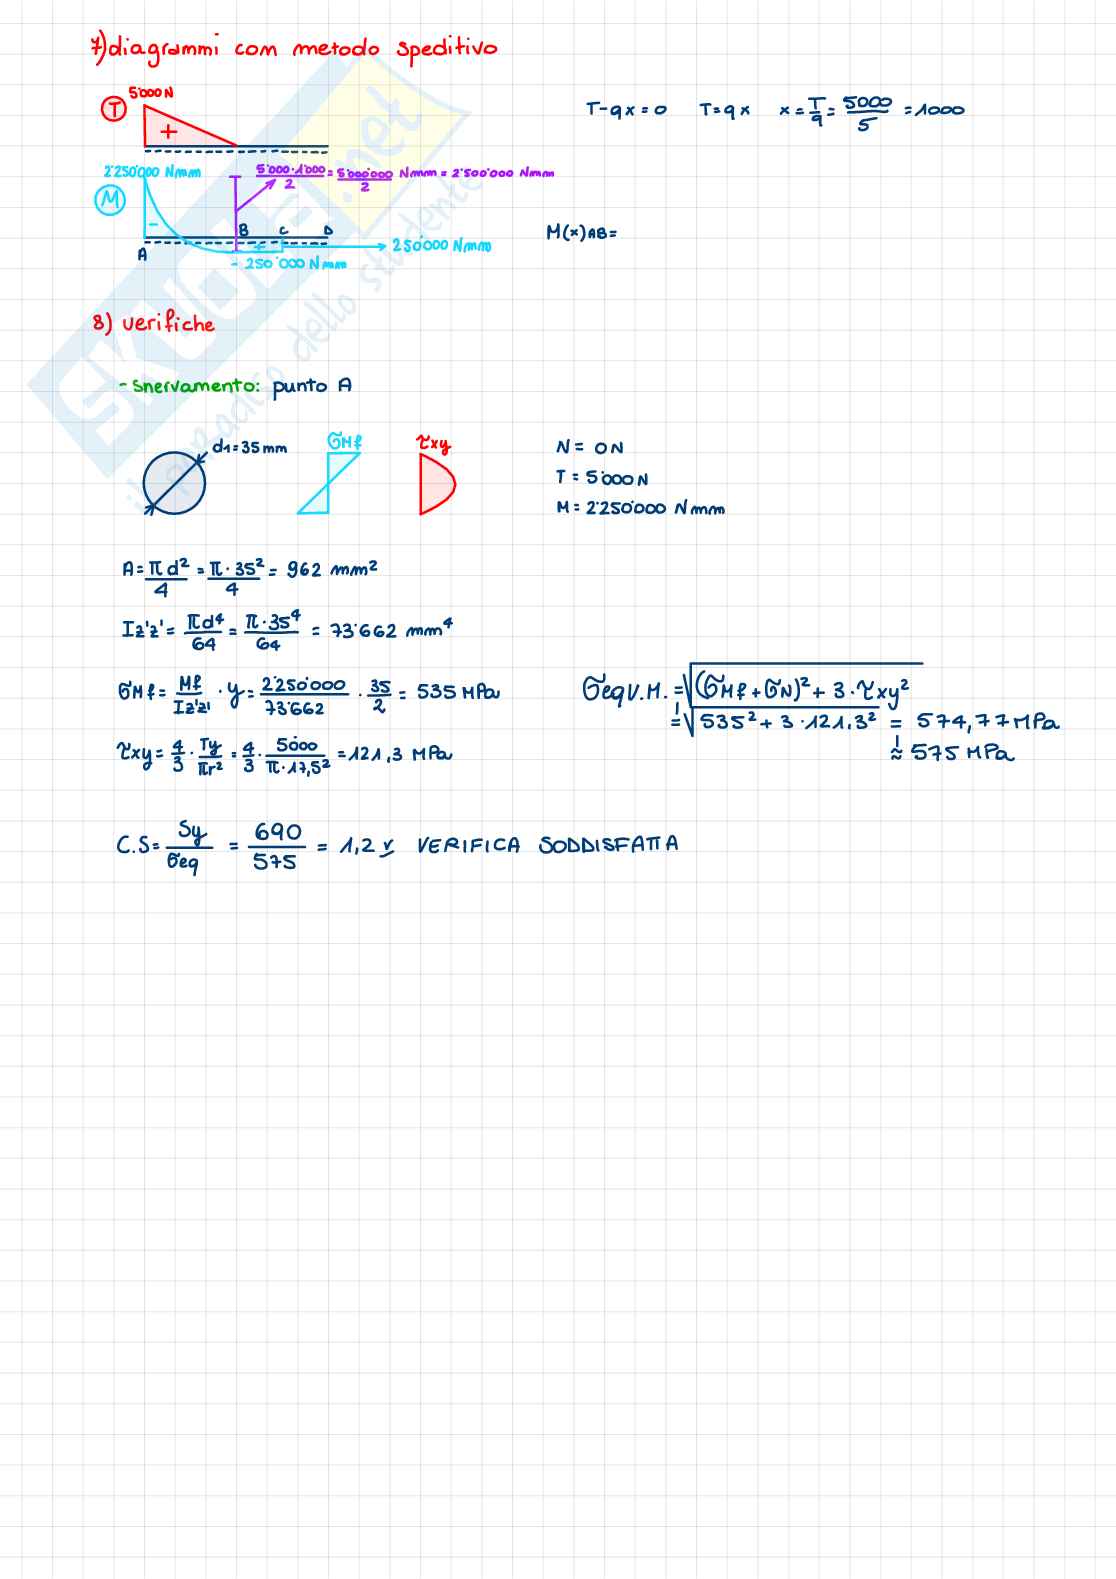 7) diagrammi com metodo speditivo
5'000 N
T
+
T-qx=0 T=qx x=T/q=5000/5=1000
2'250'000 Nmm
5'000·1'000/2=5'000'000/2 Nmm = 2'500'000 Nmm
M
-
A
B
C
D
+
250'000 Nmm
- 250'000 Nmm
M(x)AB=
8) verifiche
- Snervamento: punto A
d1=35mm
σMf
τxy
N= 0N
T= 5'000N
M= 2'250'000 Nmm
A=πd²/4=π·35²/4= 962 mm²
Iz'z'=πd⁴/64=π·35⁴/64= 73'662 mm⁴
σMf=Mf/Iz'z'·y=2'250'000/73'662·35/2= 535 MPa
σeqV.M.=√(σMf+σN)²+3·τxy²
=√535²+3·121,3² = 574,77MPa
≈ 575 MPa
τxy=4/3·Ty/πr²=4/3·5'000/π·17,5²=121,3 MPa
C.S=Sy/σeq = 690/575 = 1,2 v VERIFICA SODDISFATTA
SKUOLA.net
il paradiso dello studente